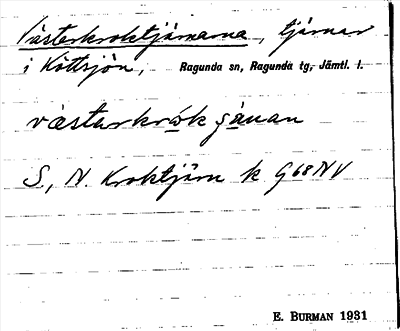 Västerkroktjärnarna, tjärnar
i Köttsjön, Ragunda sn, Ragunda tg, Jämtl. l.
västerkrok
S., N. Kroktjärn k G 68 NV
E. BURMAN 1931